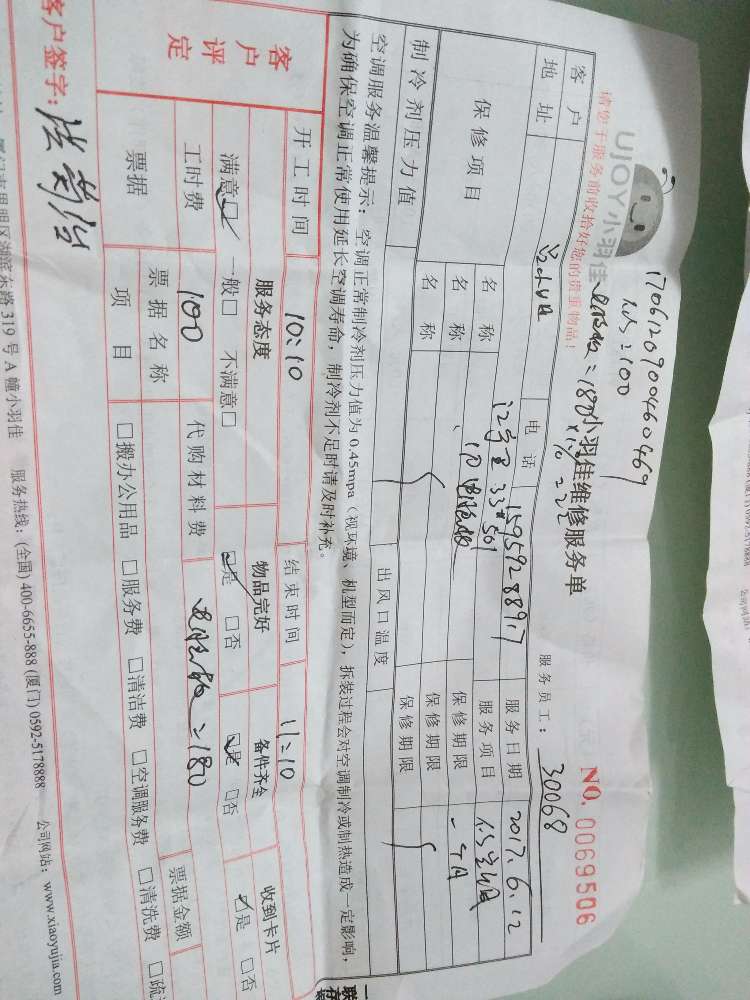 1706120900460469
=100
UJOY小羽佳
=180
小羽佳维修服务单
NO. 0069506
请您于服务前收拾好您的贵重物品！
服务员工：
30068
客户
电话
15959288917
服务日期
2017.6.12
地址
33#501
服务项目
保修项目
名称
保修期限
一个月
名称
保修期限
名称
保修期限
制冷剂压力值
出风口温度
空调服务温馨提示：空调正常制冷剂压力值为0.45mpa（视环境、机型而定），拆装过程会对空调制冷或制热造成一定影响，
为确保空调正常使用延长空调寿命，制冷剂不足时请及时补充。
开工时间
10:10
结束时间
11:10
客户评定
服务态度
物品完好
备件齐全
收到卡片
满意□ 一般□ 不满意□
□是 □否
□是 □否
□是 □否
工时费
100
代购材料费
=180
票据
票据名称
票据金额
项目
□搬办公用品 □服务费 □清洁费 □空调服务费 □清洗费
客户签字：
湖滨东路319号A幢小羽佳 服务热线：(全国) 400-6655-888 (厦门) 0592-5178888 公司网站：www.xiaoyujia.com